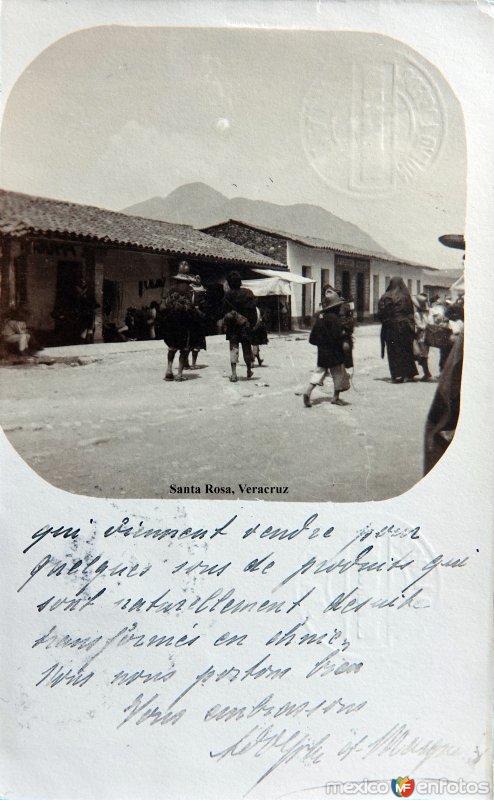 Santa Rosa, Veracruz
qui viennent vendre pour
quelques sous de produits qui
sont naturellement desuite
transformés en
Nous nous portons bien
Vous embrassons
Adolphe et
mexicoenfotos
MF